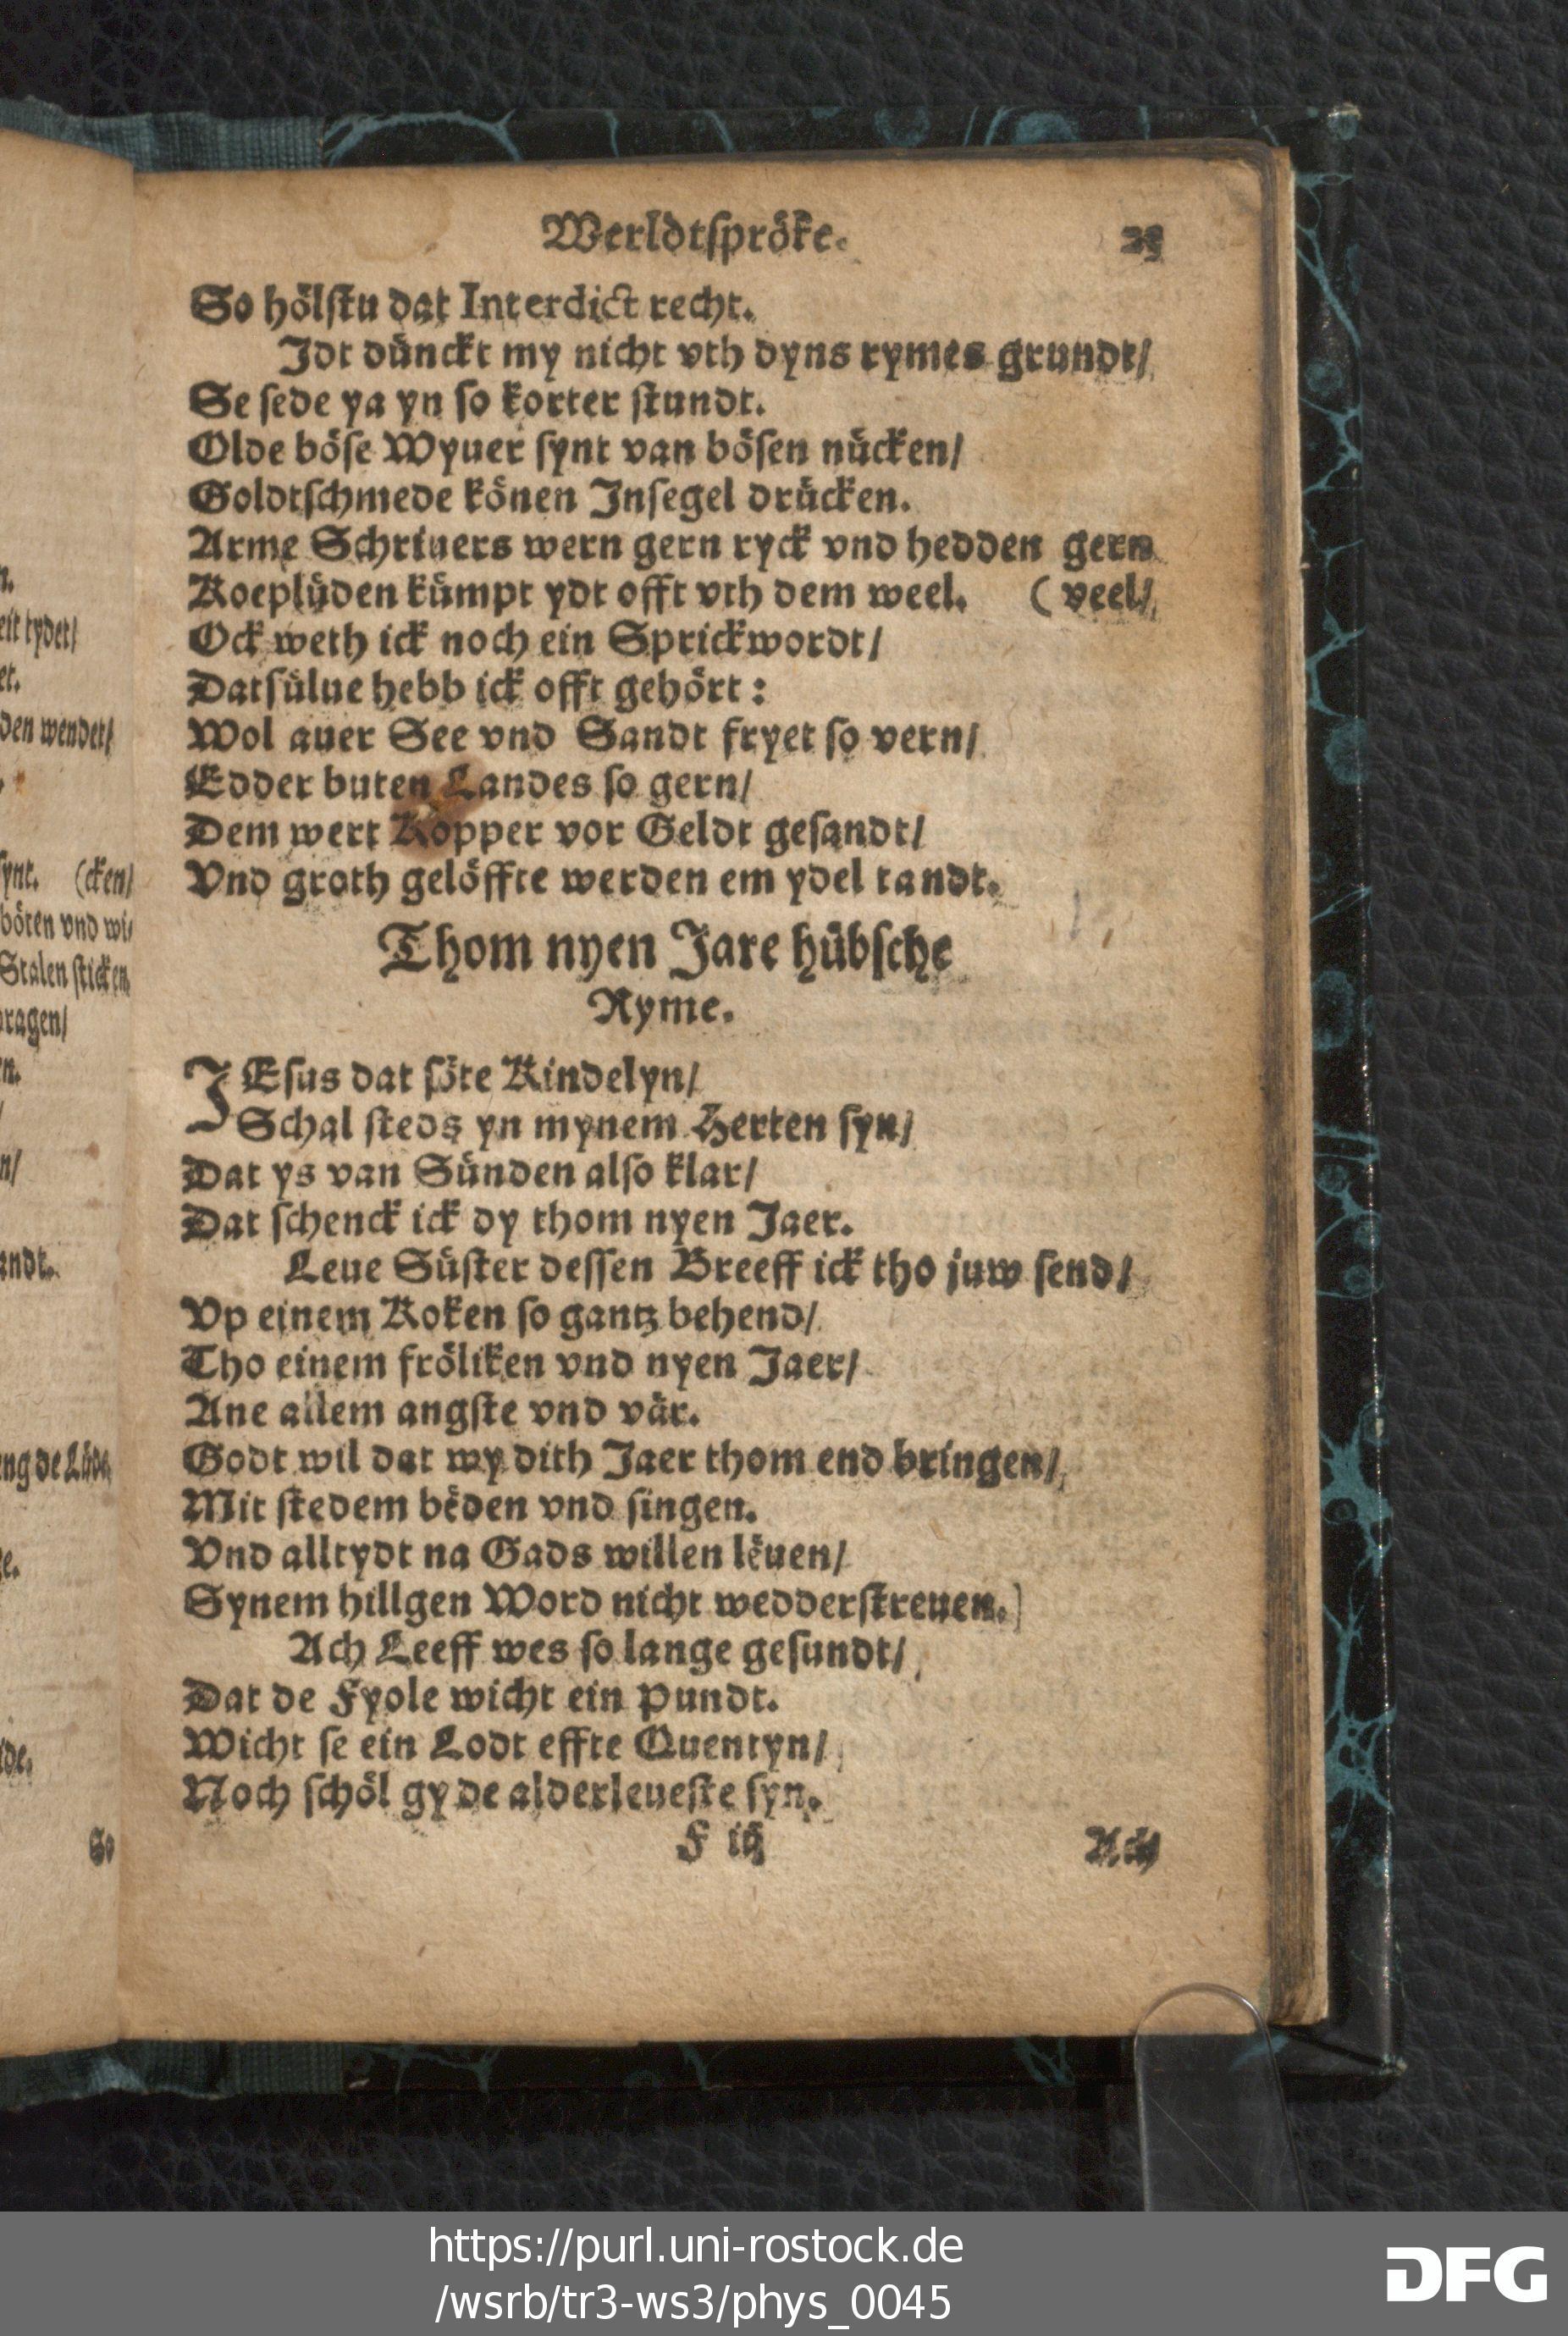 Werldtspröke. 25
So hölstu dat Interdict recht.
Jdt dünckt my nicht vth dyns rymes grundt/
Se sede ya yn so korter stundt.
Olde böse Wyuer synt van bösen nücken/
Goldtschmede könen Jnsegel drücken.
Arme Schriuers wern gern ryck vnd hedden gern
Koeplüden kümpt ydt offt vth dem weel. ( veel/
Ock weth ick noch ein Sprickwordt/
Datsülue hebb ick offt gehört:
Wol auer See vnd Sandt fryet so vern/
Edder buten Landes so gern/
Dem wert Kopper vor Geldt gesandt/
Vnd groth gelöffte werden em ydel tandt.
Thom nyen Jare hübsche
Ryme.
JEsus dat söte Kindelyn/
Schal steds yn mynem Herten syn/
Dat ys van Sünden also klar/
Dat schenck ick dy thom nyen Jaer.
Leue Süster dessen Breeff ick tho juw send/
Vp einem Koken so gantz behend/
Tho einem fröliken vnd nyen Jaer/
Ane allem angste vnd vär.
Godt wil dat wy dith Jaer thom end bringen/
Mit stedem bëden vnd singen.
Vnd alltydt na Gads willen lëuen/
Synem hillgen Word nicht wedderstreuen.
Ach Leeff wes so lange gesundt/
Dat de Fyole wicht ein Pundt.
Wicht se ein Lodt effte Quentyn/
Noch schöl gy de alderleueste syn.
F iij Ach
n.
eit tydet/
et.
den wendet/
synt. (cken/
böten vnd wi/
Stalen sticken
dragen/
en.
n/
andt.
eng de Lüde
ge.
ide.
So
https://purl.uni-rostock.de
/wsrb/tr3-ws3/phys_0045
DFG